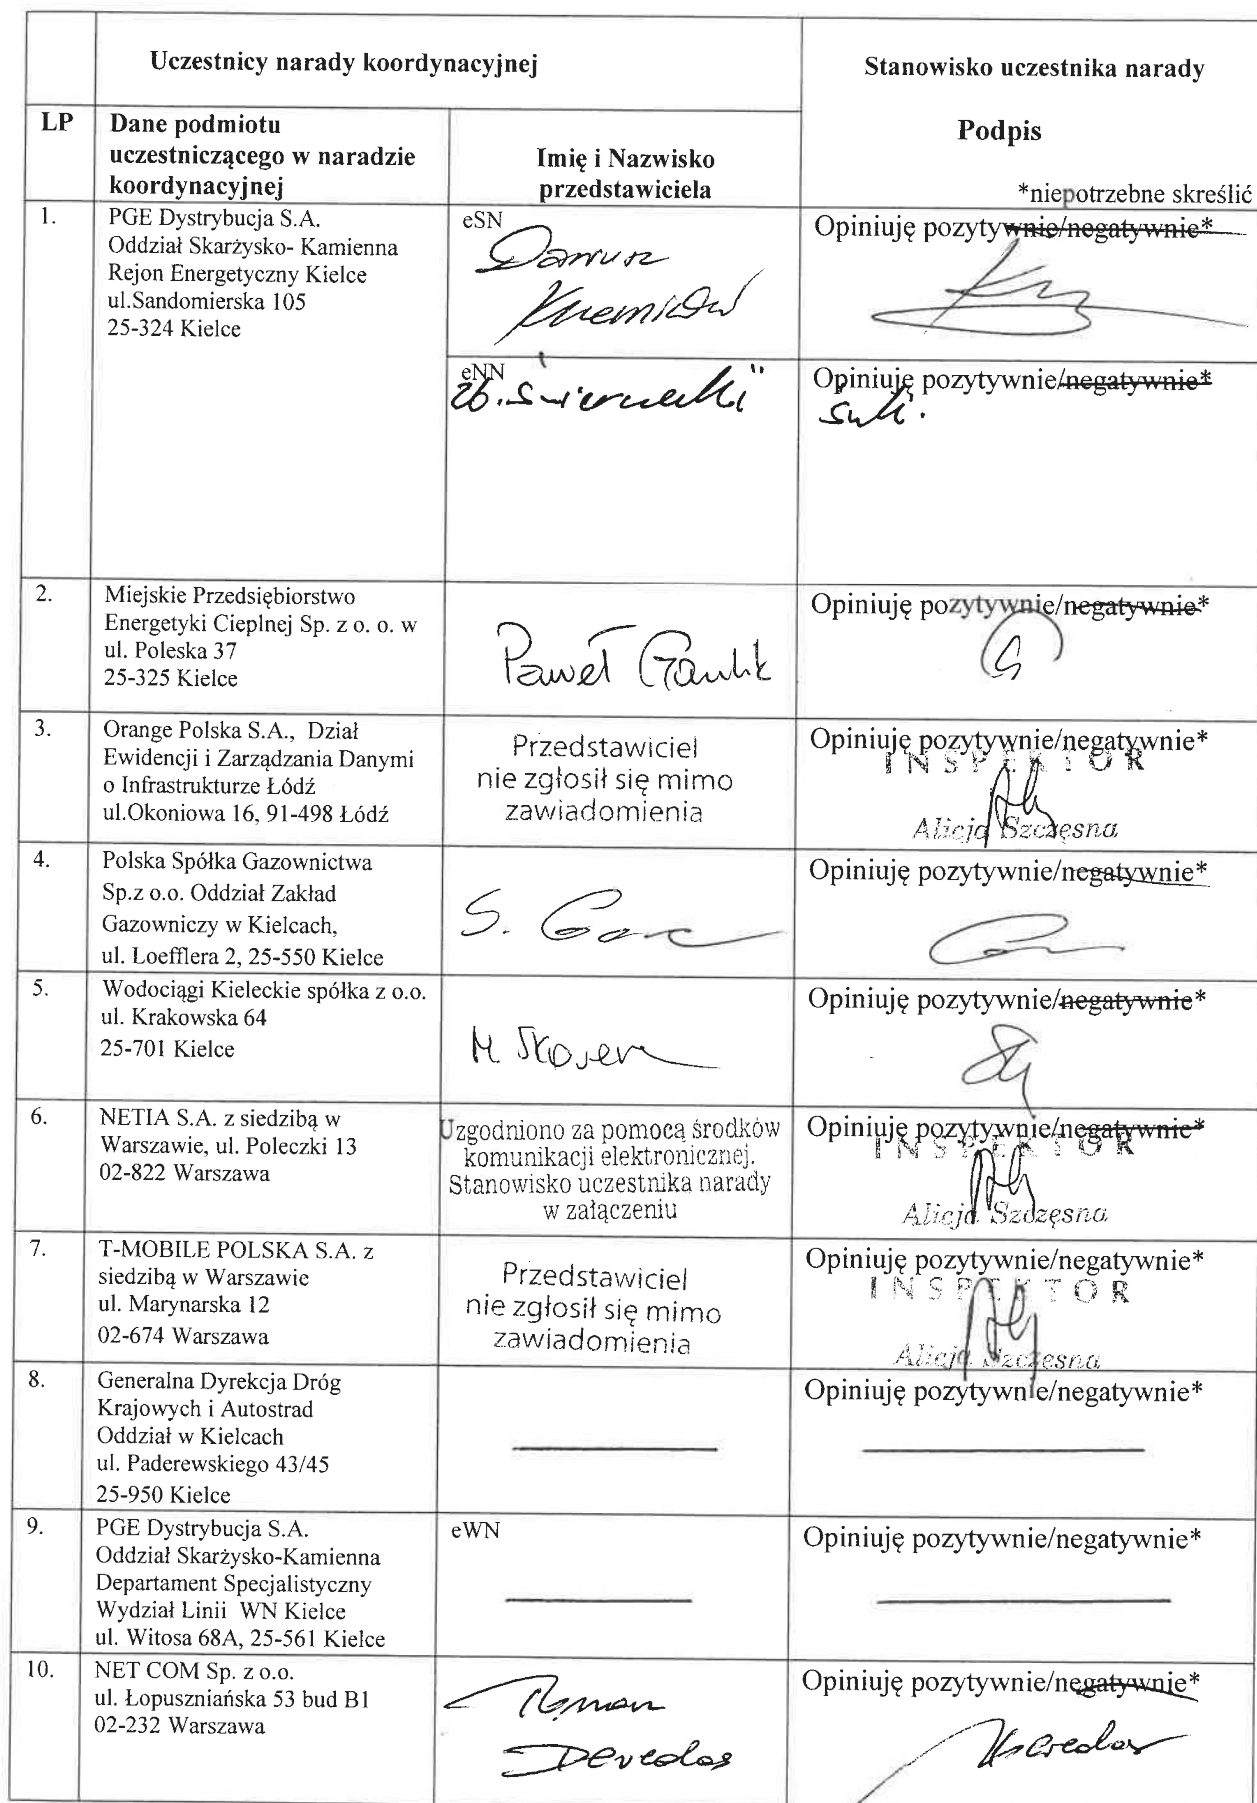 Uczestnicy narady koordynacyjnej
Stanowisko uczestnika narady
LP
Dane podmiotu
uczestniczącego w naradzie
koordynacyjnej
Imię i Nazwisko
przedstawiciela
Podpis
*niepotrzebne skreślić
1.
PGE Dystrybucja S.A.
Oddział Skarżysko- Kamienna
Rejon Energetyczny Kielce
ul.Sandomierska 105
25-324 Kielce
eSN
Dariusz
Opiniuję pozytywnie/negatywnie*
eNN
Opiniuję pozytywnie/negatywnie*
2.
Miejskie Przedsiębiorstwo
Energetyki Cieplnej Sp. z o. o. w
ul. Poleska 37
25-325 Kielce
Paweł Gawlik
Opiniuję pozytywnie/negatywnie*
3.
Orange Polska S.A., Dział
Ewidencji i Zarządzania Danymi
o Infrastrukturze Łódź
ul.Okoniowa 16, 91-498 Łódź
Przedstawiciel
nie zgłosił się mimo
zawiadomienia
Opiniuję pozytywnie/negatywnie*
INSPEKTOR
Alicja Szczęsna
4.
Polska Spółka Gazownictwa
Sp.z o.o. Oddział Zakład
Gazowniczy w Kielcach,
ul. Loefflera 2, 25-550 Kielce
S.
Opiniuję pozytywnie/negatywnie*
5.
Wodociągi Kieleckie spółka z o.o.
ul. Krakowska 64
25-701 Kielce
M.
Opiniuję pozytywnie/negatywnie*
6.
NETIA S.A. z siedzibą w
Warszawie, ul. Poleczki 13
02-822 Warszawa
Uzgodniono za pomocą środków
komunikacji elektronicznej.
Stanowisko uczestnika narady
w załączeniu
Opiniuję pozytywnie/negatywnie*
INSPEKTOR
Alicja Szczęsna
7.
T-MOBILE POLSKA S.A. z
siedzibą w Warszawie
ul. Marynarska 12
02-674 Warszawa
Przedstawiciel
nie zgłosił się mimo
zawiadomienia
Opiniuję pozytywnie/negatywnie*
INSPEKTOR
Alicja Szczęsna
8.
Generalna Dyrekcja Dróg
Krajowych i Autostrad
Oddział w Kielcach
ul. Paderewskiego 43/45
25-950 Kielce
Opiniuję pozytywnie/negatywnie*
9.
PGE Dystrybucja S.A.
Oddział Skarżysko-Kamienna
Departament Specjalistyczny
Wydział Linii WN Kielce
ul. Witosa 68A, 25-561 Kielce
eWN
Opiniuję pozytywnie/negatywnie*
10.
NET COM Sp. z o.o.
ul. Łopuszniańska 53 bud B1
02-232 Warszawa
Roman
Opiniuję pozytywnie/negatywnie*